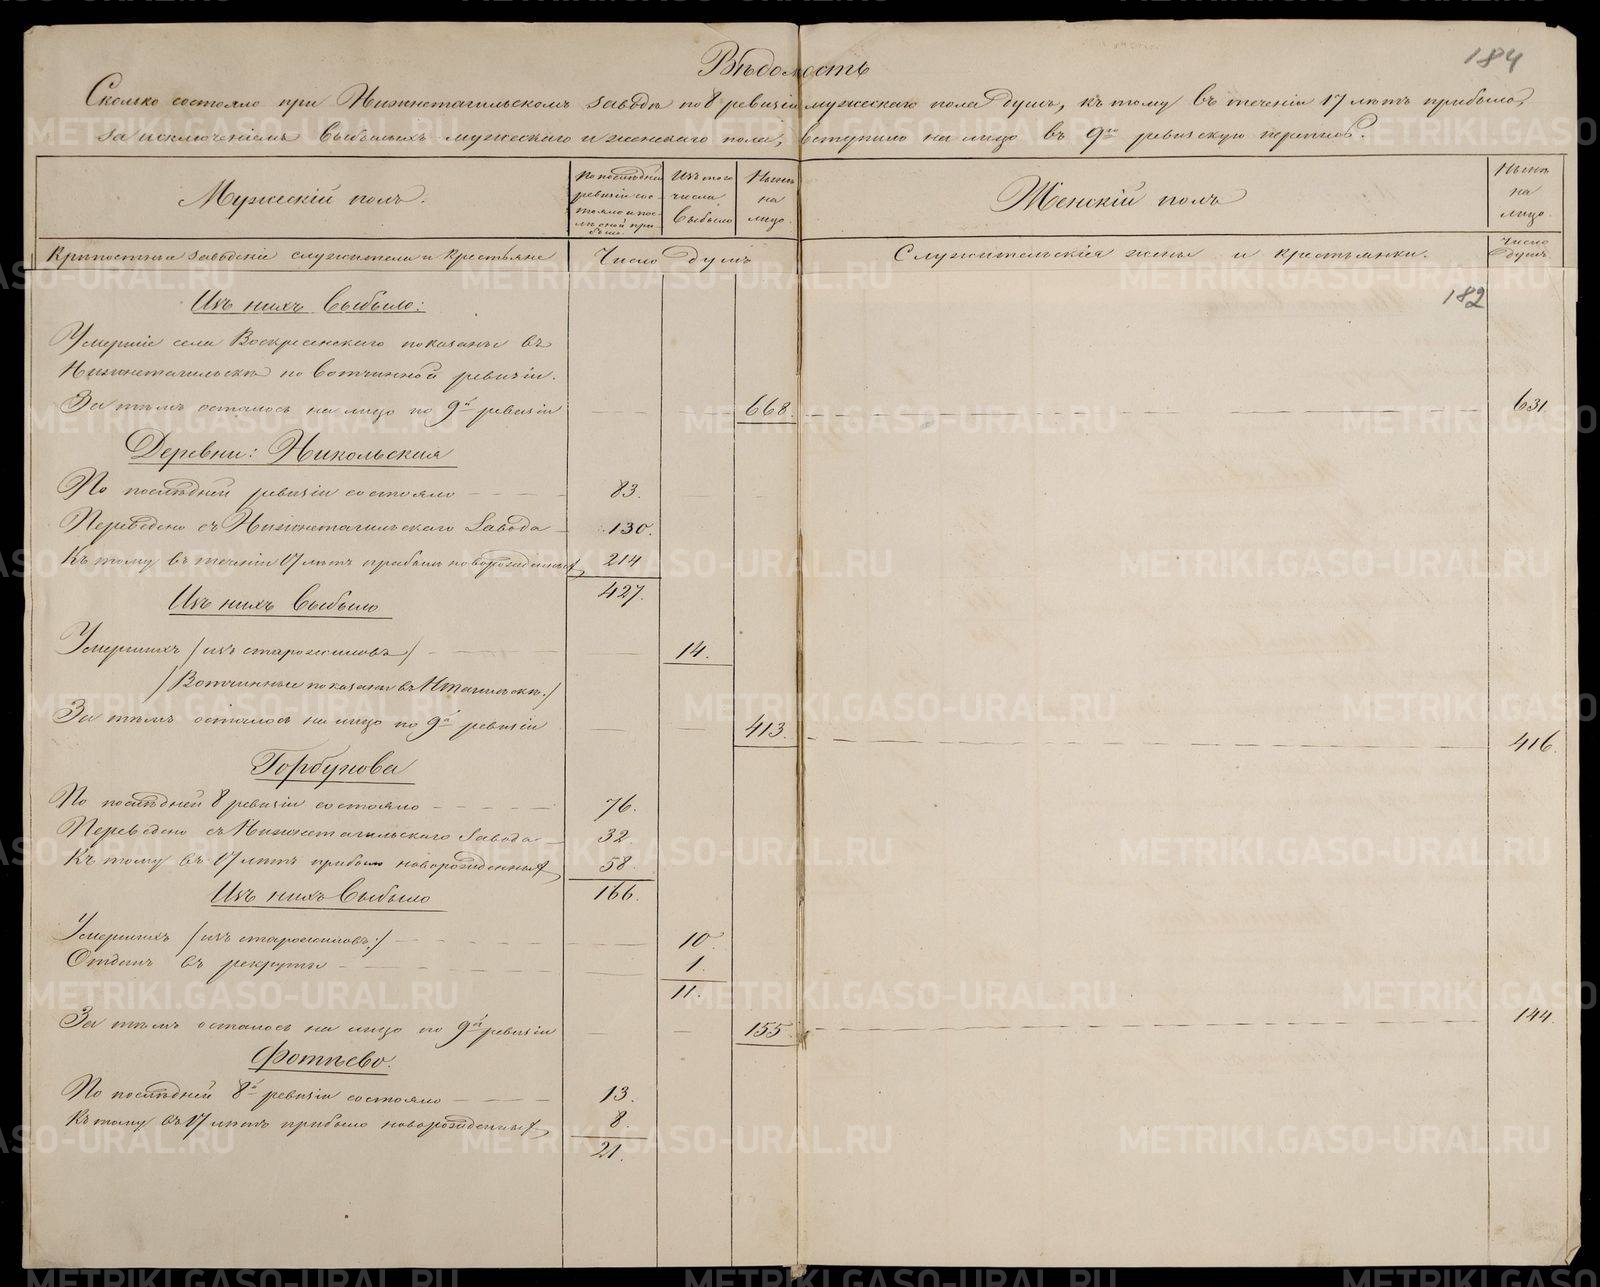 184
Вѣдомость
Сколько состояло при Нижнетагильскомъ заводѣ по 8 ревизіи мужескаго пола душъ, къ тому въ теченіи 17 лѣтъ прибыло,
за исключеніемъ выбылыхъ мужескаго и женскаго пола, вступило на лицо въ 9ю ревизскую перепись.
Мужескій полъ.
По послѣдней ревизіи состояло и послѣ оной прибыло.
Изъ того числа выбыло
Нынѣ на лицо.
Женскій полъ
Нынѣ на лицо.
Крѣпостные заводскіе служители и крестьяне
Число душъ
Служительскія жены и крестьянки.
Число душъ.
182
Изъ нихъ выбыло:
Умершіе села Воскресенскаго показаны въ
Нижнетагильскѣ по вотчинной ревизіи.
За тѣмъ осталось на лицо по 9й ревизіи 668. 631.
Деревни: Никольская
По послѣдней ревизіи состояло 83.
Переведено съ Нижнетагильскаго завода 130.
Къ тому въ теченіи 17 лѣтъ прибыло новорожденныхъ 214
427.
Изъ нихъ выбыло
Умершихъ /изъ старожиловъ/ 14.
/Вотчинные показаны въ Нтагильскѣ./
За тѣмъ осталось на лицо по 9й ревизіи 413. 416.
Горбунова
По послѣдней 8 ревизіи состояло 76.
Переведено съ Нижнетагильскаго завода 32.
Къ тому въ 17 лѣтъ прибыло новорожденныхъ 58.
166.
Изъ нихъ выбыло
Умершихъ /изъ старожиловъ:/ 10.
Отданъ въ рекруты 1.
11.
За тѣмъ осталось на лицо по 9й ревизіи 155. 144.
Фотѣево.
По послѣдней 8й ревизіи состояло 13.
Къ тому въ 17 лѣтъ прибыло новорожденныхъ 8.
21.
METRIKI.GASO-URAL.RU